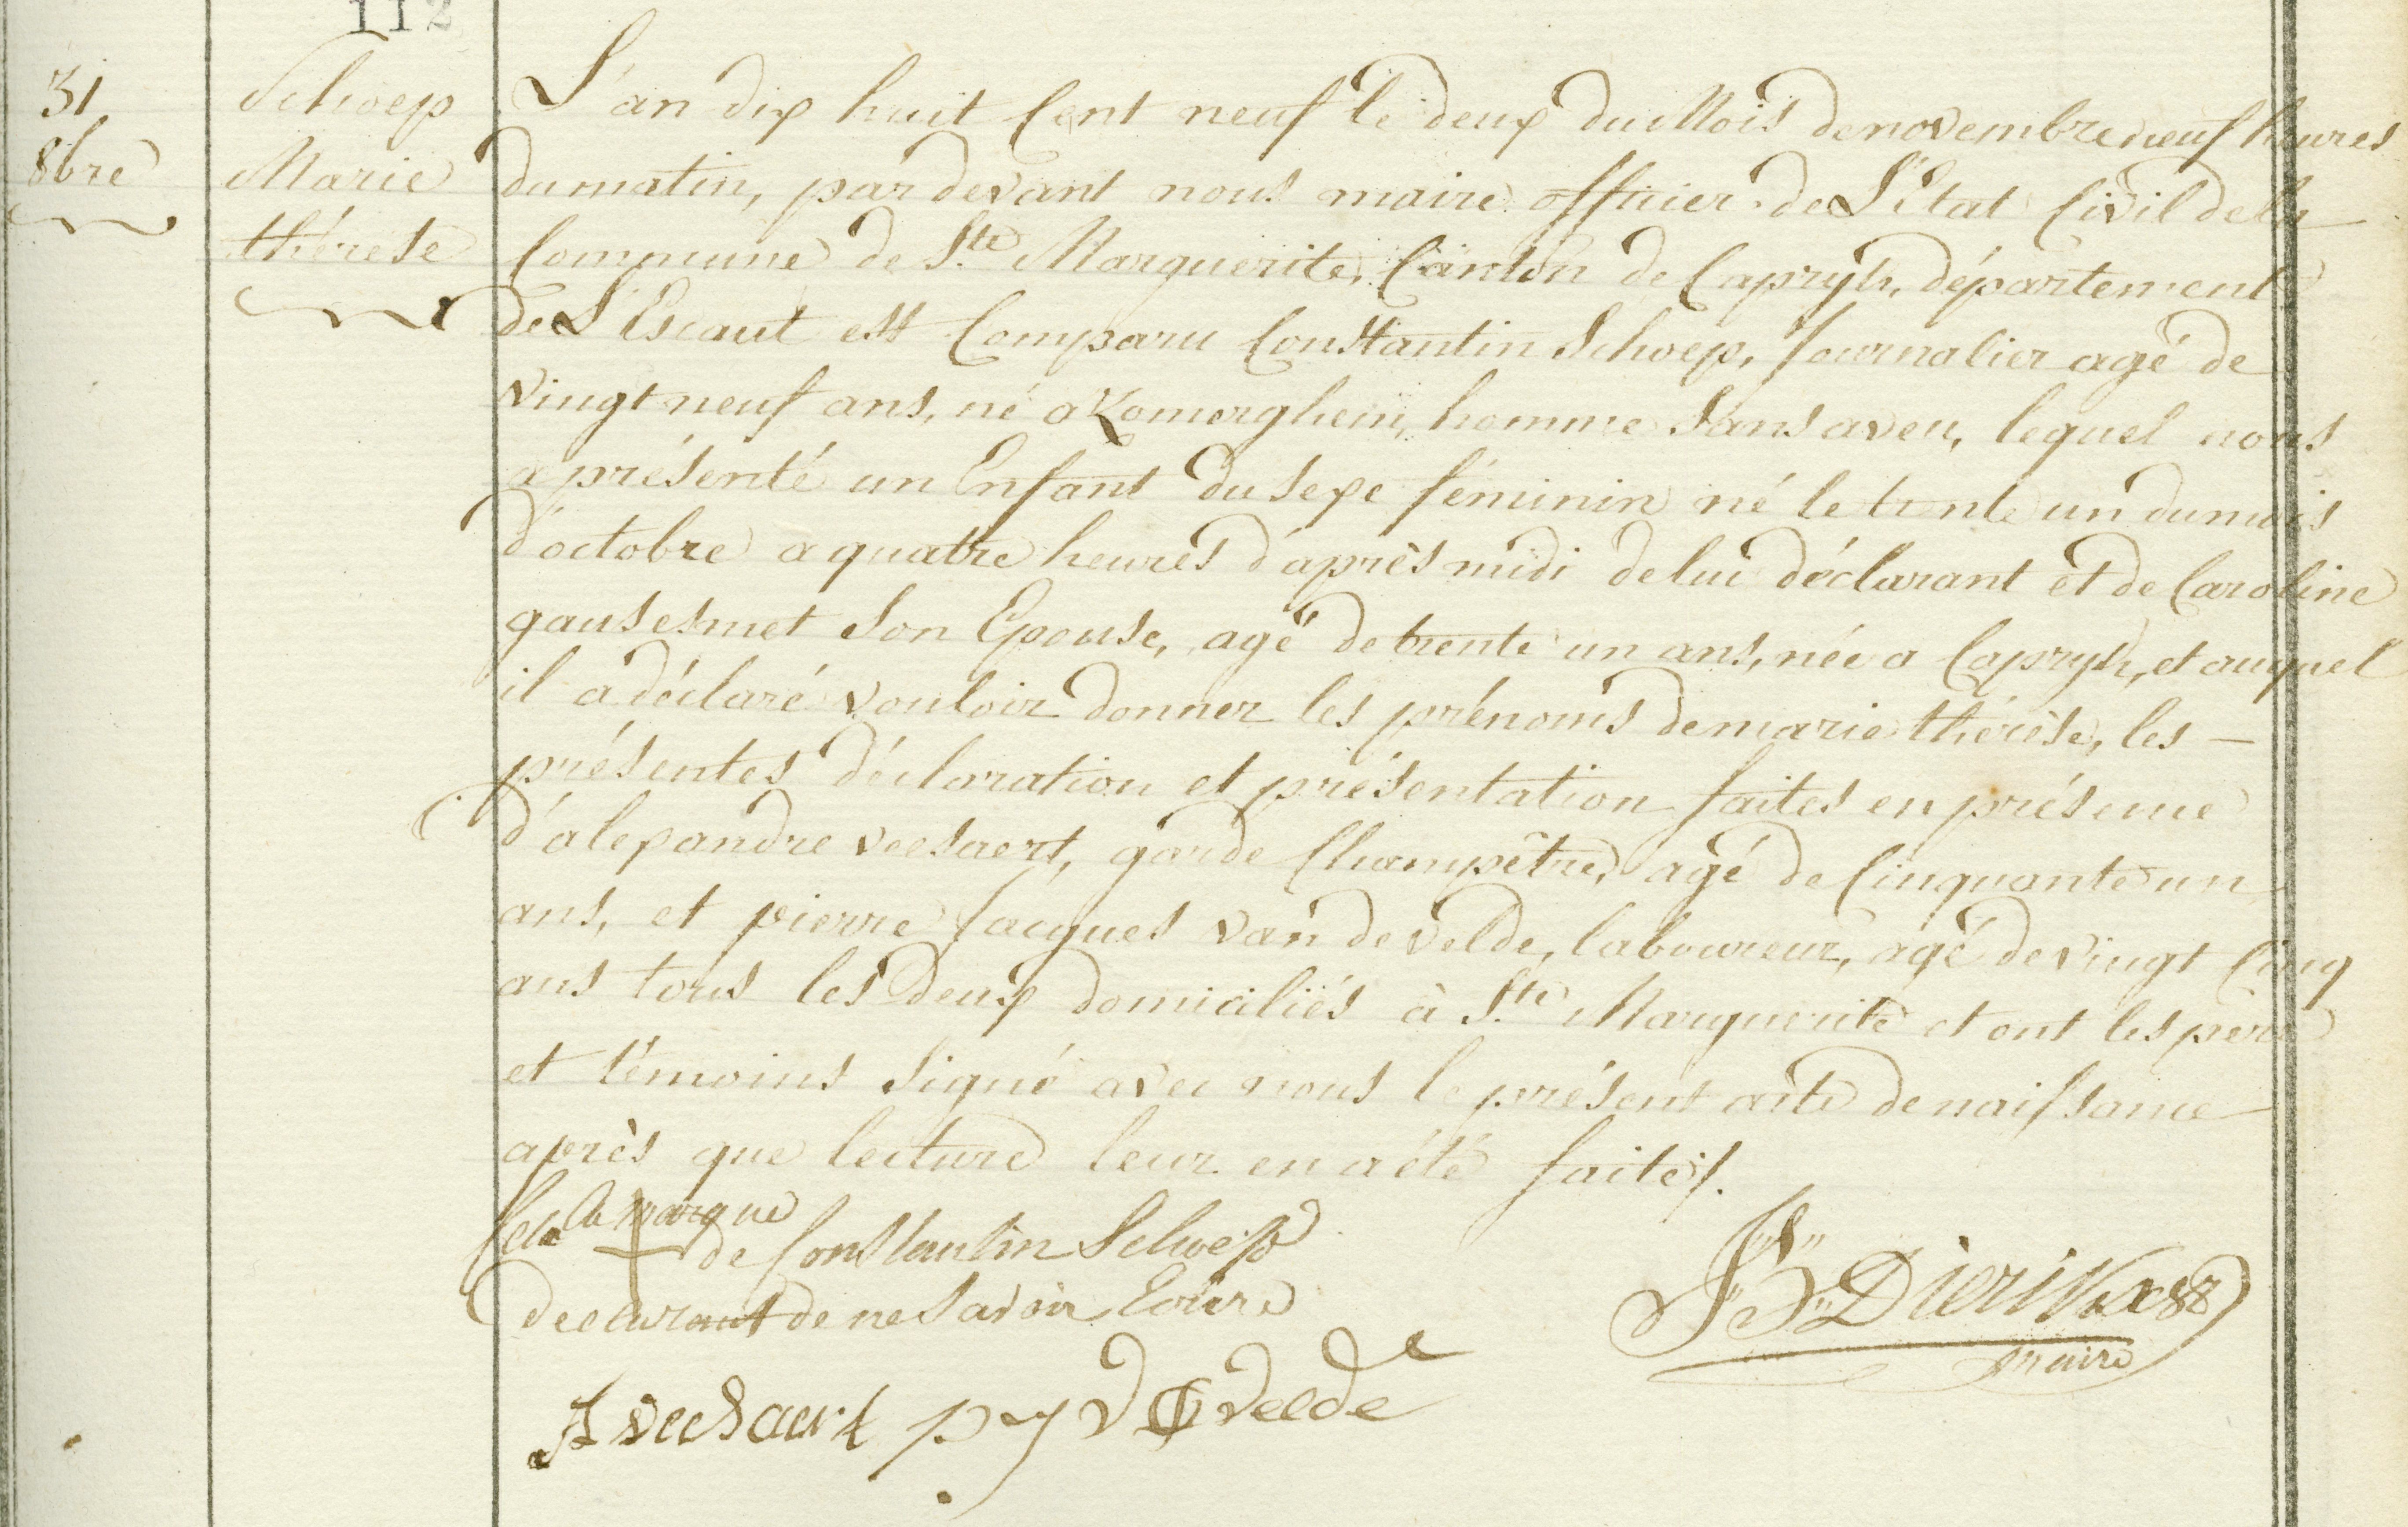 112
31
8bre
Schoep
Marie
thérèse
L'an dix huit Cent neuf le deux du Mois de novembre neuf heures
du matin, par devant nous maire officier de L'Etat Civil de la
Commune de Ste Marguerite, Canton de Capryk, département
de L'Escaut est Comparu Constantin Schoep, Journalier agé de
vingt neuf ans, né a Zomerghem, homme sans aveu, lequel nous
a présenté un Enfant du sexe féminin né le trente un du mois
d'octobre a quatre heures d'après midi de lui déclarant et de Caroline
gausesmet son Epouse, agé de trente un ans, née a Capryk, et auquel
il a déclaré vouloir donner les prénoms de marie thérèse, les —
présentes déclaration et présentation faites en présence
d'alexandre veesaert, garde Champêtre, agé de Cinquante un
ans, et pierre Jacques van de velde, laboureur, agé de vingt Cinq
ans tous les deux domiciliés à Ste Marguerite et ont les père
et témoins signé avec nous le présent acte de naissance
après que lecture leur en a été faite/.
Cete la marque
de Constantin Schoep
declarant de ne savoir Ecrire
J S Dierikx
maire
A veesaert p J v de velde